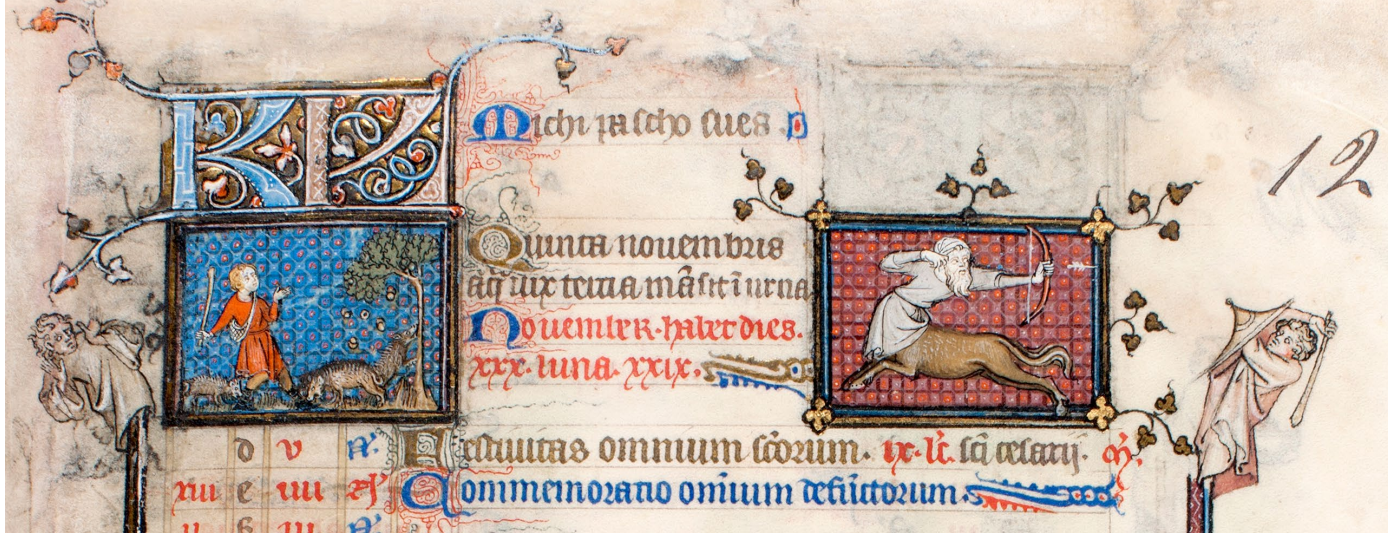 KL
Michi pascho sues D
12
Quinta novembris
acꝰ vix tertia mãsit ĩ urna
Novembeʀ · habet dies.
xxx · luna · xxix.
d v N̄. Festivitas omnium sc̄orum. ix. lc̄. sc̄i cesarij. m̄.
xiii e iiii N̄. Commemoratio om̄ium defūctorum
ii f iii N̄.